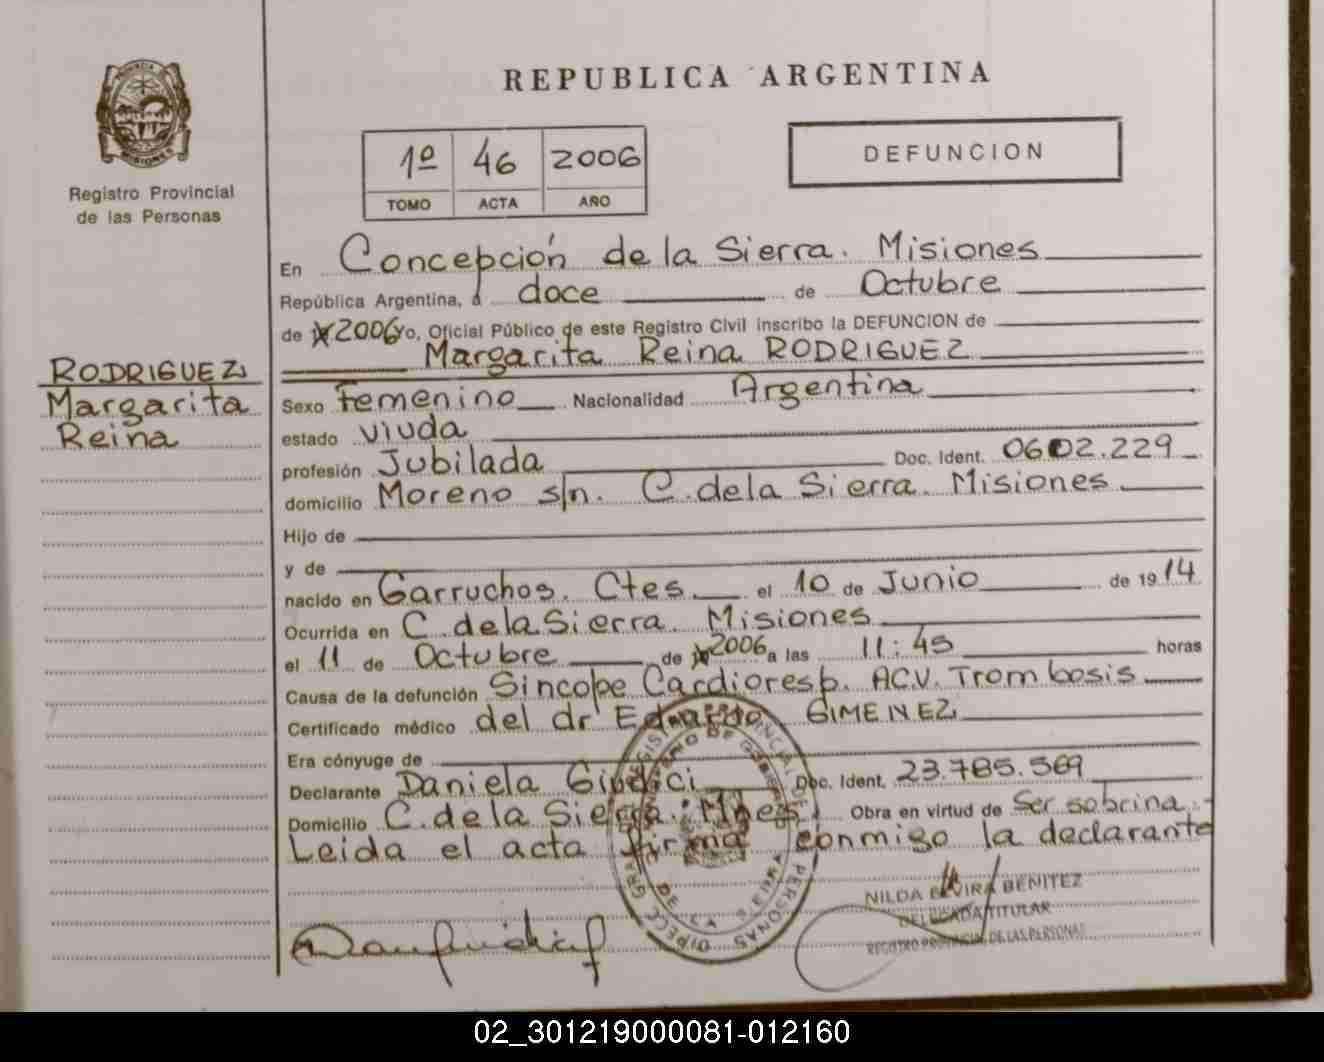 REPUBLICA ARGENTINA
PROVINCIA DE
MISIONES
Registro Provincial
de las Personas
1º 46 2006
TOMO ACTA AÑO
DEFUNCION
En Concepción de la Sierra. Misiones
República Argentina, a doce de Octubre
de 2006 yo, Oficial Público de este Registro Civil inscribo la DEFUNCION de
Margarita Reina RODRIGUEZ
RODRIGUEZ
Margarita
Reina
Sexo Femenino Nacionalidad Argentina
estado viuda
profesión Jubilada Doc. Ident. 0602.229
domicilio Moreno s/n. C. de la Sierra. Misiones
Hijo de
y de
nacido en Garruchos. Ctes. el 10 de Junio de 1914
Ocurrida en C. de la Sierra. Misiones
el 11 de Octubre de 2006 a las 11:45 horas
Causa de la defunción Sincope Cardioresp. ACV. Trombosis
Certificado médico del dr Eduardo GIMENEZ
Era cónyuge de
Declarante Daniela Giudici Doc. Ident. 23.785.569
Domicilio C. de la Sierra. Mnes. Obra en virtud de Ser sobrina.-
Leida el acta firma conmigo la declarante
NILDA ELVIRA BENITEZ
DELEGADA TITULAR
REGISTRO PROVINCIAL DE LAS PERSONAS
02_301219000081-012160